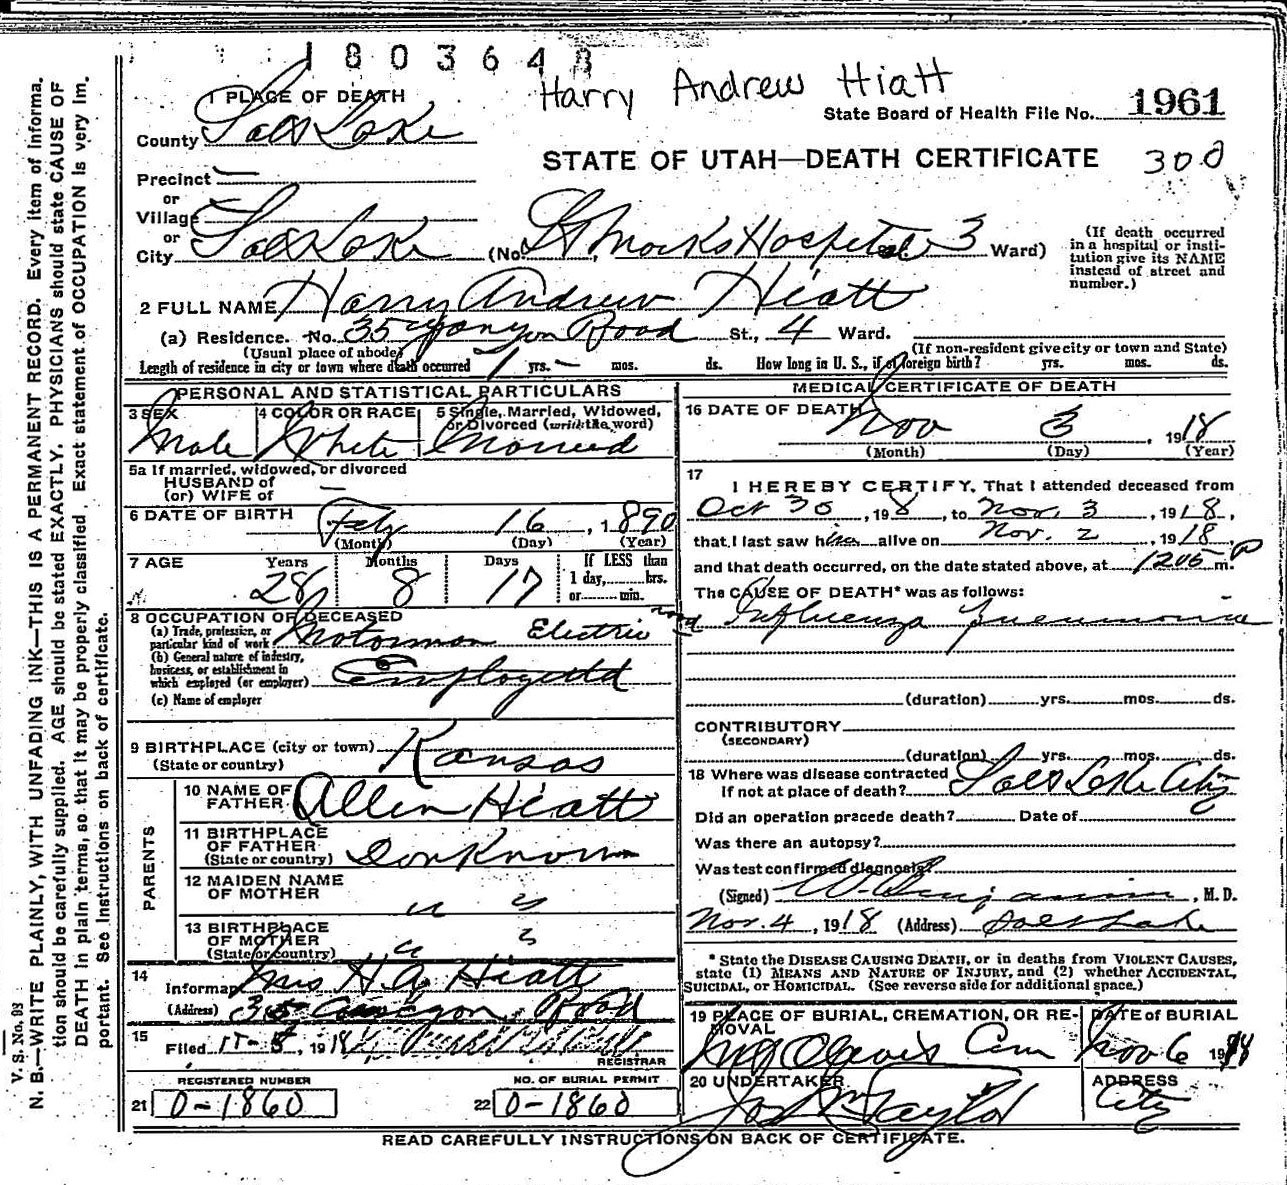 1803648
Harry Andrew Hiatt
1 PLACE OF DEATH
State Board of Health File No. 1961
County Salt Lake
STATE OF UTAH—DEATH CERTIFICATE 300
Precinct —
or
Village
or
City Salt Lake (No. St Marks Hospital 3 Ward)
(If death occurred in a hospital or insti-
tution give its NAME
instead of street and
number.)
2 FULL NAME Harry Andrew Hiatt
(a) Residence. No. 35 Canyon Road St., 4 Ward.
(Usual place of abode) (If non-resident give city or town and State)
Length of residence in city or town where death occurred 1 yrs. — mos. ds. How long in U. S., if of foreign birth? yrs. mos. ds.
PERSONAL AND STATISTICAL PARTICULARS
3 SEX Male
4 COLOR OR RACE White
5 Single, Married, Widowed,
or Divorced (write the word)
Married
5a If married, widowed, or divorced
HUSBAND of
(or) WIFE of —
6 DATE OF BIRTH Feby 16, 1890
(Month) (Day) (Year)
7 AGE Years Months Days If LESS than
1 day, hrs.
or min.
28 8 17
8 OCCUPATION OF DECEASED
(a) Trade, profession, or
particular kind of work Motorman Electric road
(b) General nature of industry,
business, or establishment in
which employed (or employer) Employed
(c) Name of employer
9 BIRTHPLACE (city or town)
(State or country) Kansas
PARENTS
10 NAME OF
FATHER Allen Hiatt
11 BIRTHPLACE
OF FATHER
(State or country) Don Know
12 MAIDEN NAME
OF MOTHER " "
13 BIRTHPLACE
OF MOTHER
(State or country) " "
14
Informant Mrs H. A. Hiatt
(Address) 35 Canyon Road
15
Filed 11-5, 1918
REGISTRAR
REGISTERED NUMBER NO. OF BURIAL PERMIT
21 0-1860 22 0-1860
MEDICAL CERTIFICATE OF DEATH
16 DATE OF DEATH Nov 3, 1918
(Month) (Day) (Year)
17
I HEREBY CERTIFY, That I attended deceased from
Oct 30, 198, to Nov. 3, 1918,
that I last saw him alive on Nov. 2, 1918,
and that death occurred, on the date stated above, at 1205 P m.
The CAUSE OF DEATH* was as follows:
Influenza Pneumonia
(duration) yrs. mos. ds.
CONTRIBUTORY
(SECONDARY)
(duration) yrs. mos. ds.
18 Where was disease contracted
If not at place of death? Salt Lake City
Did an operation precede death? Date of
Was there an autopsy?
Was test confirmed diagnosis?
(Signed) W. Benjamin, M. D.
Nov. 4, 1918 (Address) Salt Lake
* State the DISEASE CAUSING DEATH, or in deaths from VIOLENT CAUSES,
state (1) MEANS AND NATURE OF INJURY, and (2) whether ACCIDENTAL,
SUICIDAL, or HOMICIDAL. (See reverse side for additional space.)
19 PLACE OF BURIAL, CREMATION, OR RE-
MOVAL
Mt Olivet Cem
DATE of BURIAL
Nov 6 1918
20 UNDERTAKER
Jos Wm Taylor
ADDRESS
City
READ CAREFULLY INSTRUCTIONS ON BACK OF CERTIFICATE.
V. S. No. 93
N. B.—WRITE PLAINLY, WITH UNFADING INK—THIS IS A PERMANENT RECORD. Every item of informa-
tion should be carefully supplied. AGE should be stated EXACTLY. PHYSICIANS should state CAUSE OF
DEATH in plain terms, so that it may be properly classified. Exact statement of OCCUPATION is very im-
portant. See Instructions on back of certificate.